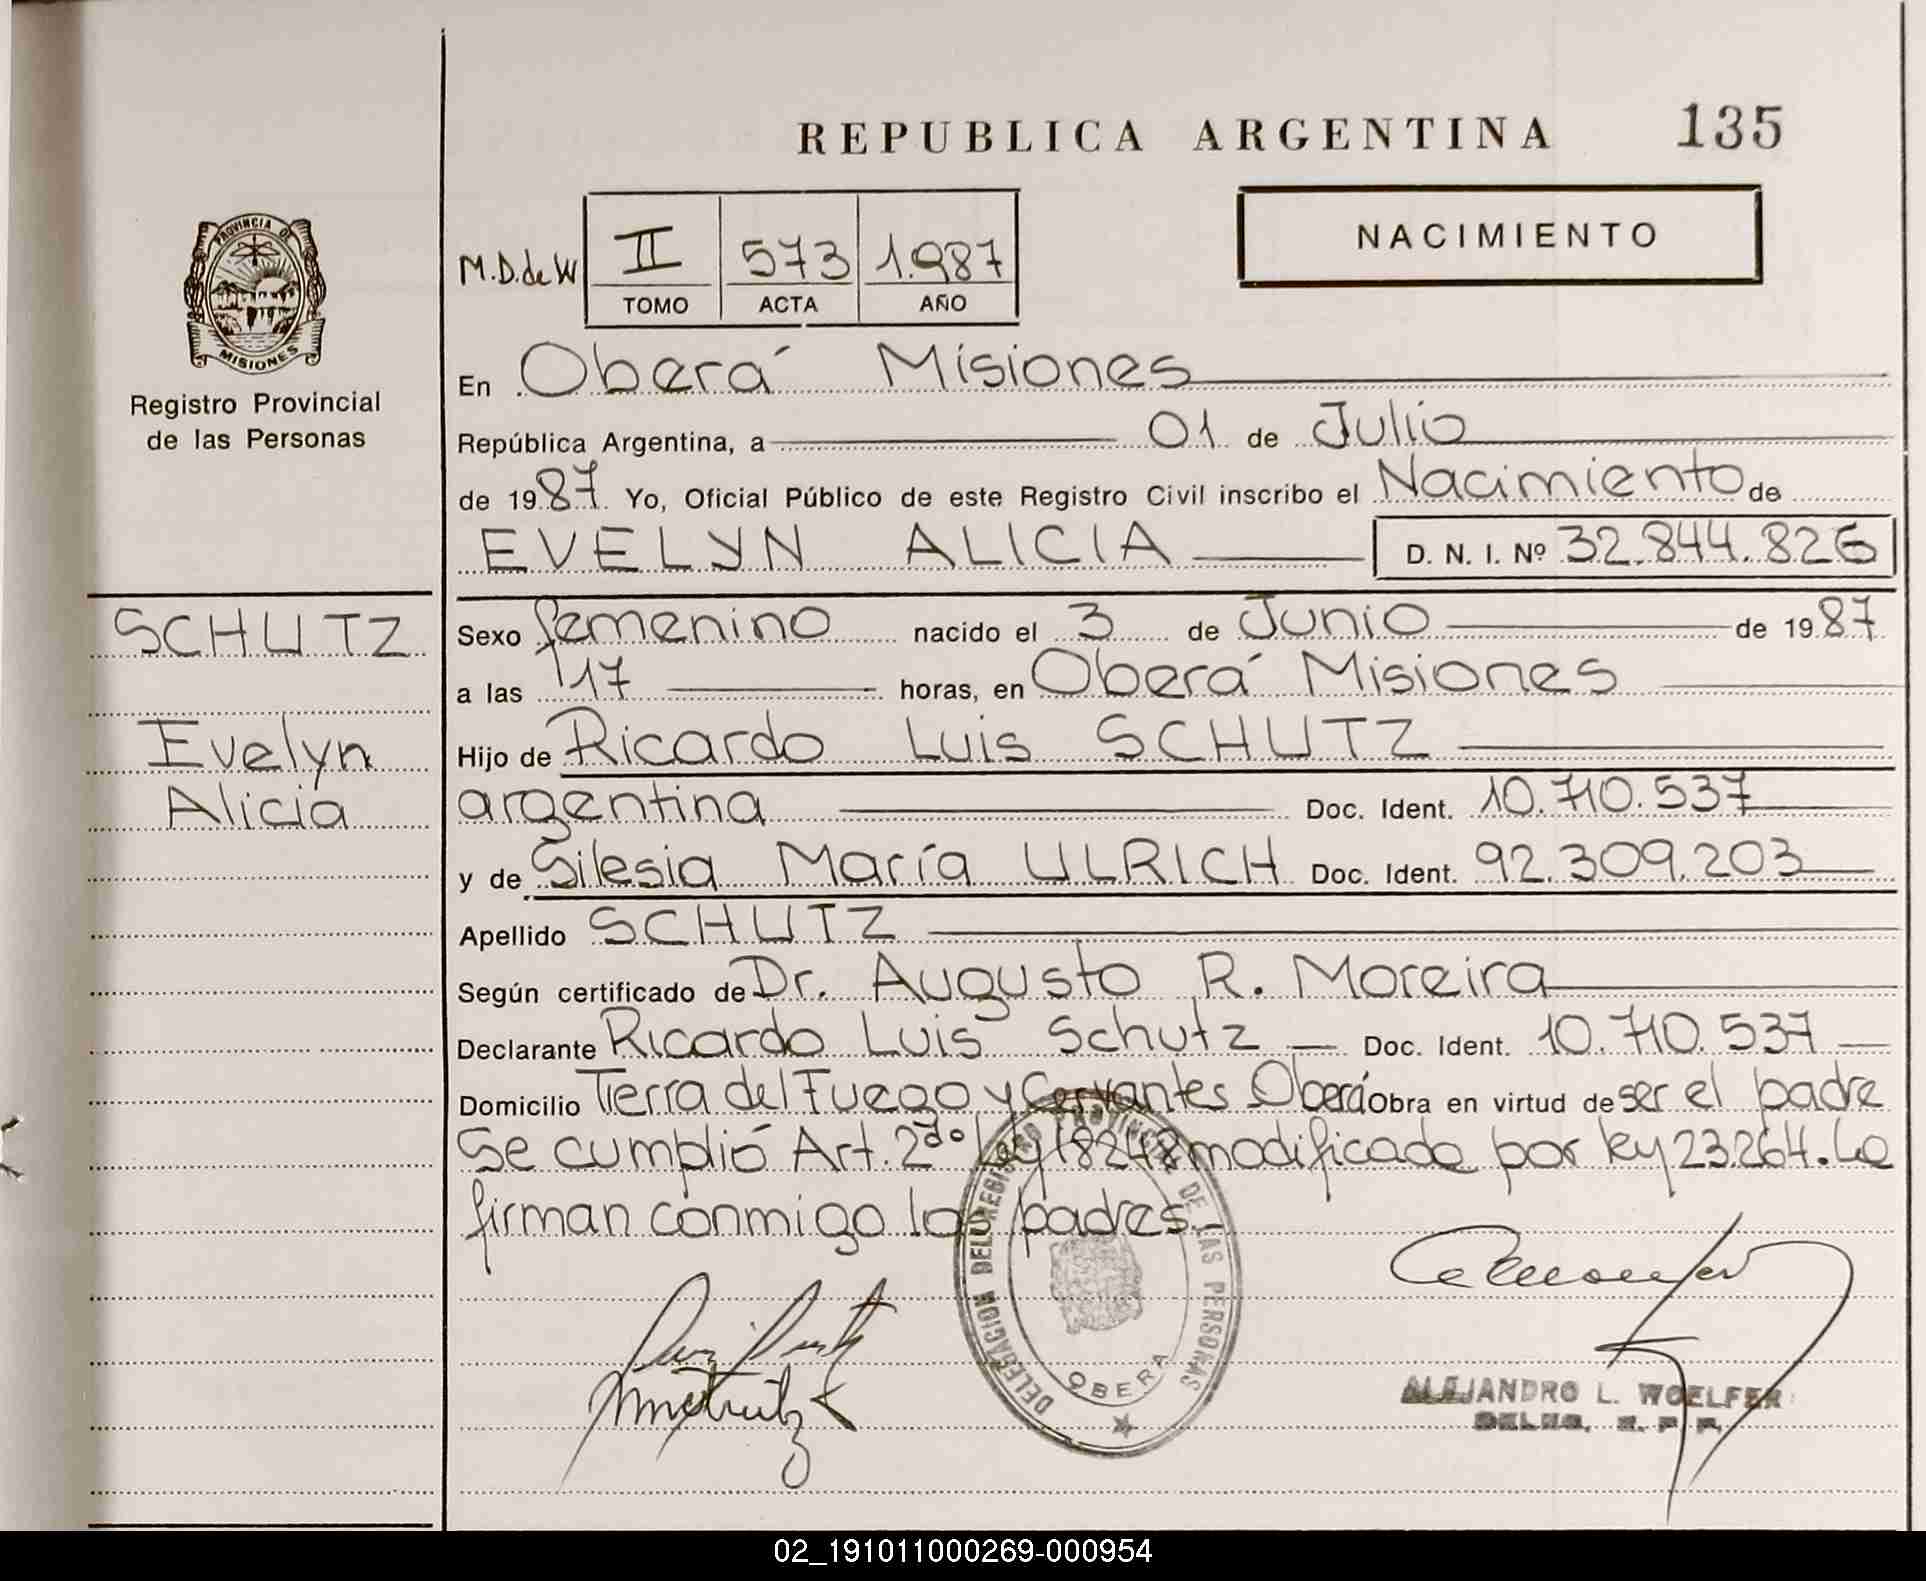 REPUBLICA ARGENTINA 135
PROVINCIA DE
MISIONES
Registro Provincial
de las Personas
M.D.de W
II 573 1.987
TOMO ACTA AÑO
NACIMIENTO
En Oberá Misiones
República Argentina, a 01 de Julio
de 1987 Yo, Oficial Público de este Registro Civil inscribo el Nacimiento de
EVELYN ALICIA D. N. I. Nº 32.844.826
SCHUTZ
Evelyn
Alicia
Sexo femenino nacido el 3 de Junio de 1987
a las 17 horas, en Oberá Misiones
Hijo de Ricardo Luis SCHUTZ
argentina Doc. Ident. 10.710.537
y de Silesia María ULRICH Doc. Ident. 92.309.203
Apellido SCHUTZ
Según certificado de Dr. Augusto R. Moreira
Declarante Ricardo Luis Schutz Doc. Ident. 10.710.537
Domicilio Tierra del Fuego y Cervantes Oberá Obra en virtud de ser el padre
Se cumplió Art. 2do Ley 18248 modificada por ley 23.264. Lo
firman conmigo los padres.
DELEGACION DEL REGISTRO PROVINCIAL DE LAS PERSONAS
OBERA
ALEJANDRO L. WOELFER
02_191011000269-000954